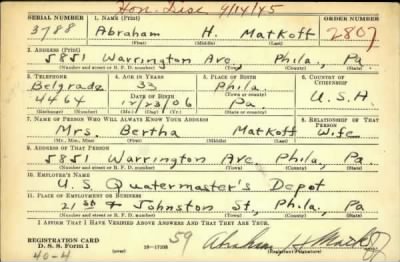 Hon. Disc 9/14/45
SERIAL NUMBER 1. NAME (Print) ORDER NUMBER
3788 Abraham H. Matkoff 2807
(First) (Middle) (Last)
2. ADDRESS (Print)
5851 Warrington Ave, Phila, Pa.
(Number and street or R. F. D. number) (Town) (County) (State)
3. TELEPHONE 4. AGE IN YEARS 5. PLACE OF BIRTH 6. COUNTRY OF CITIZENSHIP
Belgrade 33 Phila.
(Town or county)
4464 DATE OF BIRTH Pa. U.S.A.
12/23/06
(Exchange) (Number) (Mo.) (Day) (Yr.) (State or country)
7. NAME OF PERSON WHO WILL ALWAYS KNOW YOUR ADDRESS 8. RELATIONSHIP OF THAT PERSON
Mrs. Bertha Matkoff Wife
(Mr., Mrs., Miss) (First) (Middle) (Last)
9. ADDRESS OF THAT PERSON
5851 Warrington Ave. Phila, Pa.
(Number and street or R. F. D. number) (Town) (County) (State)
10. EMPLOYER'S NAME
U.S. Quatermaster's Depot
11. PLACE OF EMPLOYMENT OR BUSINESS
21 st & Johnston St., Phila, Pa.
(Number and street or R. F. D. number) (Town) (County) (State)
I AFFIRM THAT I HAVE VERIFIED ABOVE ANSWERS AND THAT THEY ARE TRUE.
REGISTRATION CARD
D. S. S. Form 1 (over) 16—17105 59 Abraham H Matkoff
40-4